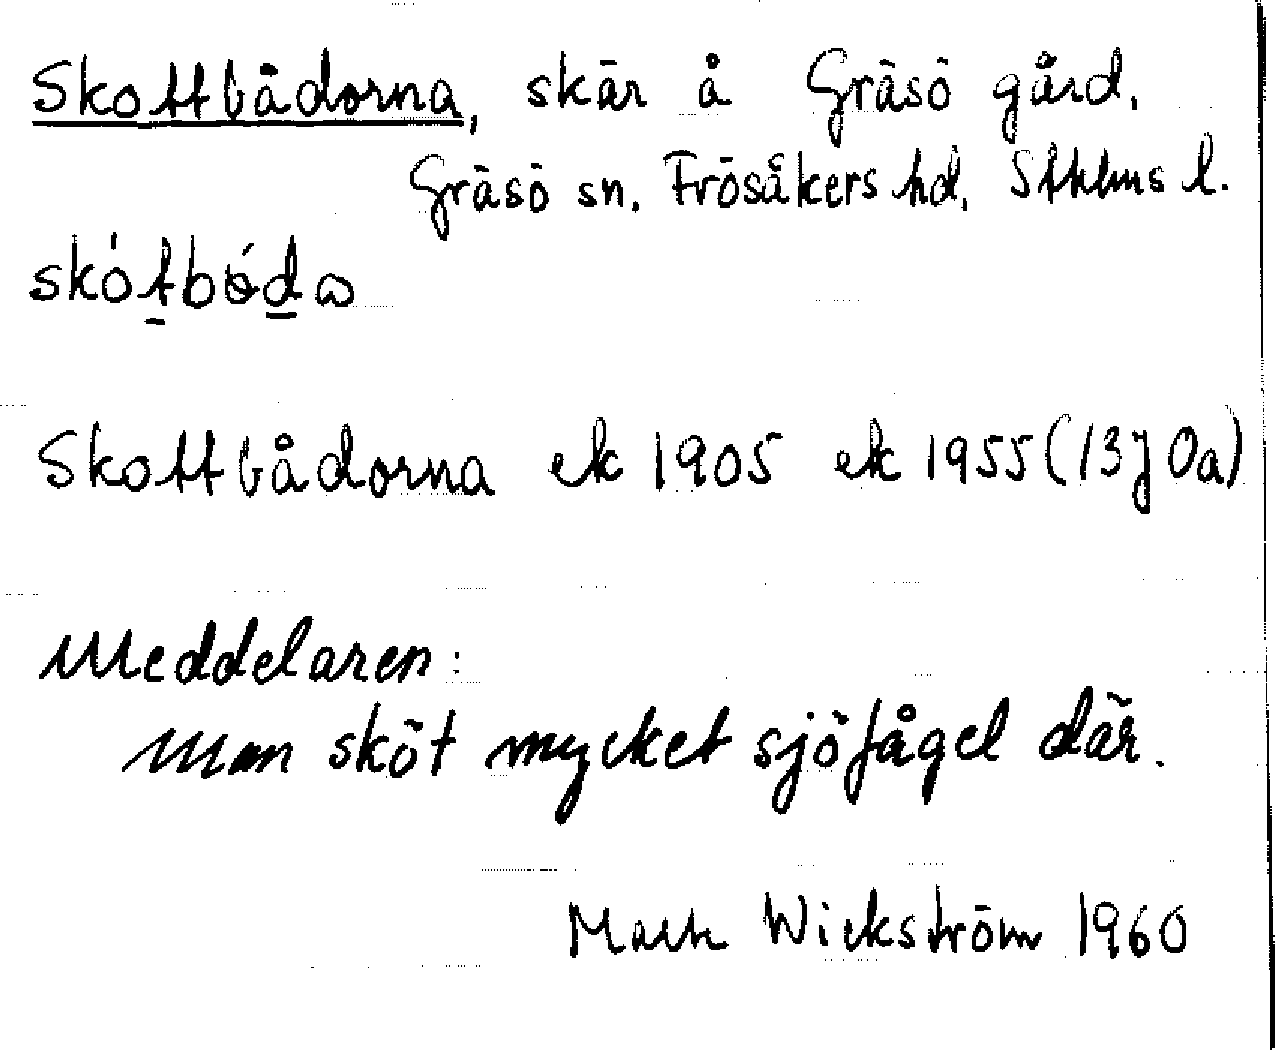 Skottbådorna, skär å Gräsö gård,
Gräsö sn. Frösåkers hd, Sthlms l.
Skottbådorna ek 1905 ek 1955 (13j 0a)
Meddelaren:
Man sköt mycket sjöfågel där.
Wickström 1960